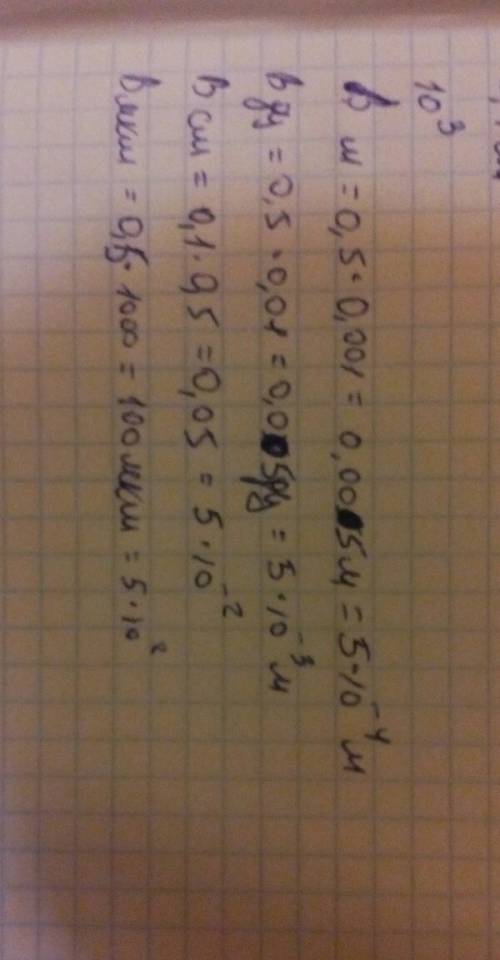 10³
В м = 0,5 · 0,001 = 0,0005 м = 5 · 10⁻⁴ м
В дм = 0,5 · 0,01 = 0,005 дм = 5 · 10⁻³ м
В см = 0,1 · 0,5 = 0,05 = 5 · 10⁻²
В мкм = 0,5 · 1000 = 100 мкм = 5 · 10²